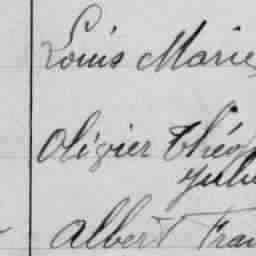 Louis Marie
Olivier Théo
Jule
Albert Fran